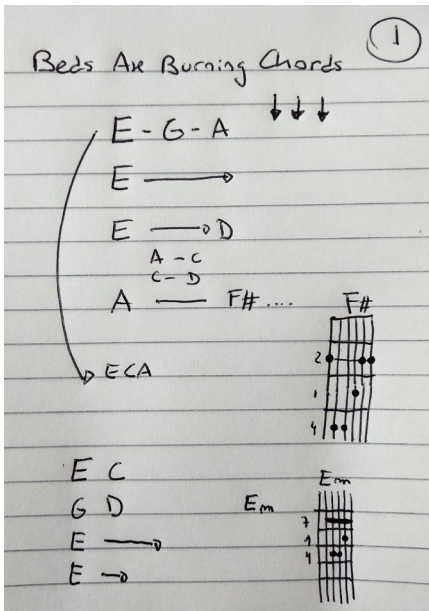 1
Beds Are Burning Chords
↓ ↓ ↓
E - G - A
E →
E → D
A - C
C - D
A — F# ....
F#
2
1
4
→ ECA
E C
G D
E →
E →
Em
Em
7
1
4